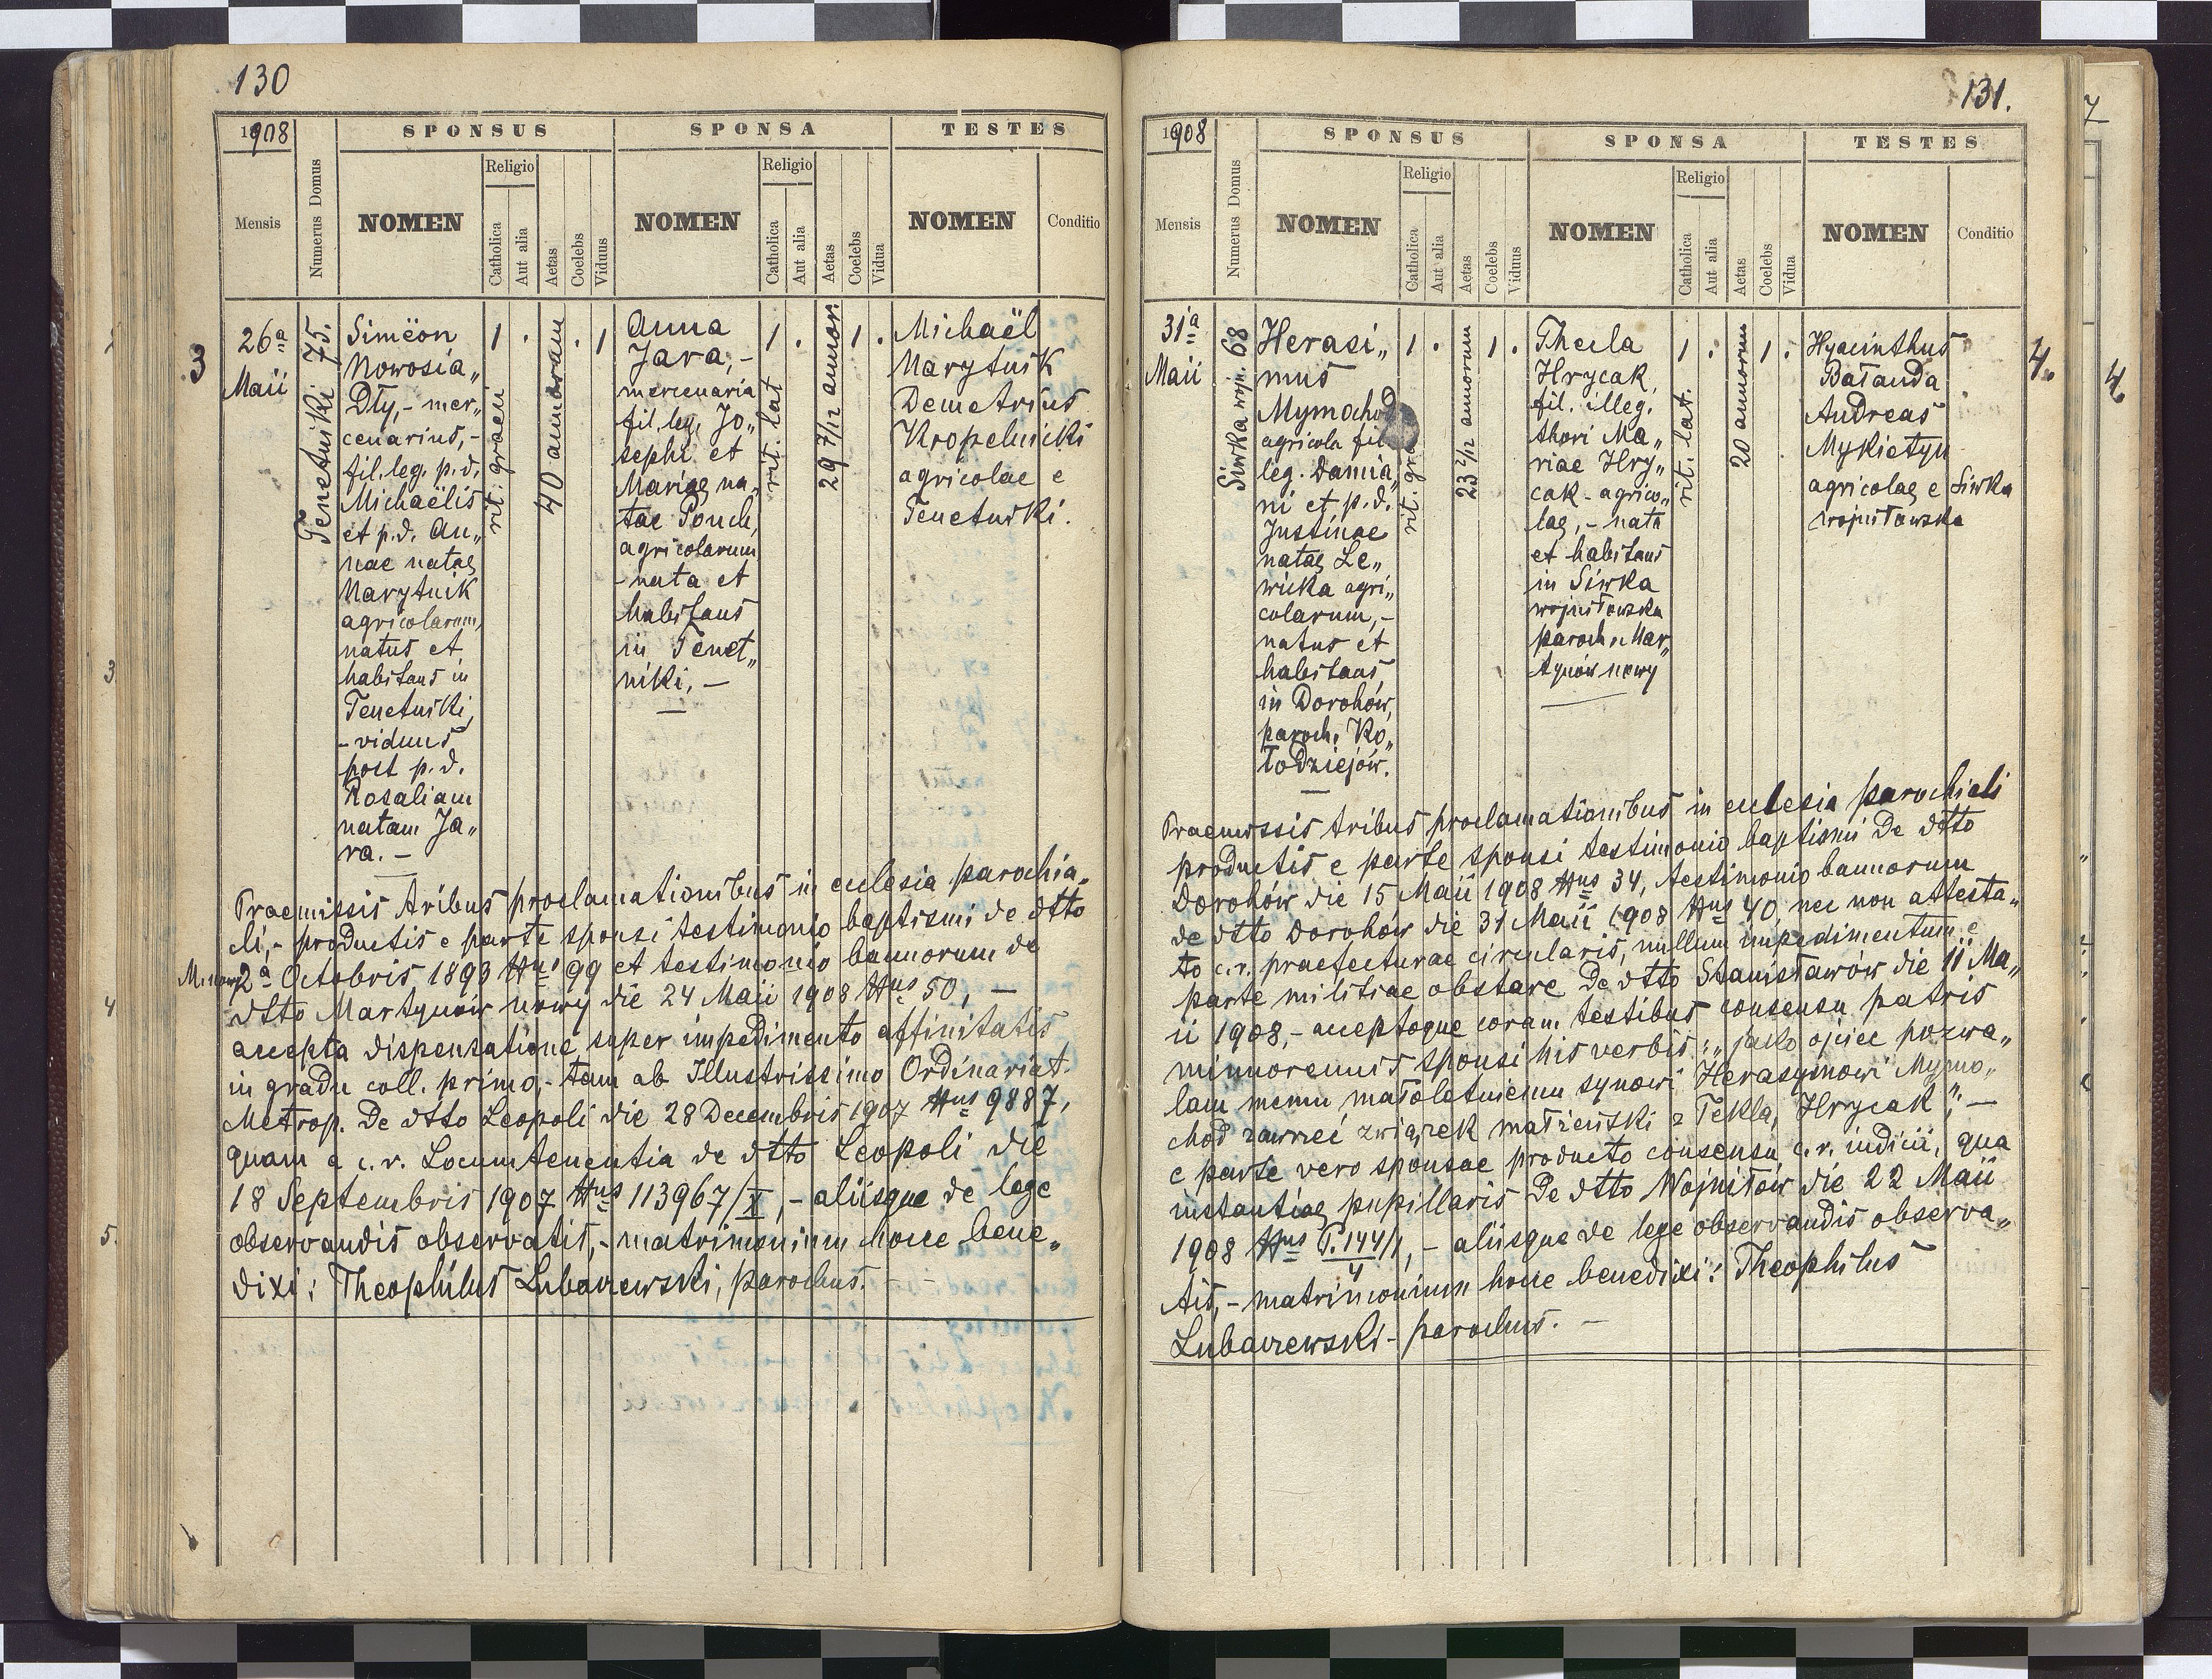 130
1908
SPONSUS
SPONSA
TESTES
Mensis
Numerus Domus
NOMEN
Religio
Catholica
Aut alia
Aetas
Coelebs
Viduus
NOMEN
Religio
Catholica
Aut alia
Aetas
Coelebs
Vidua
NOMEN
Conditio
3
26ª
Maii
Tenetniki 75.
Simëon
Nowosia„
dły,- mer„
cenarius,-
fil. leg. p.d.
Michaëlis
et p.d. An„
nae natae
Marytnik
agricolarum,
natus et
habitans in
Tenetniki,
- viduus
post p.d.
Rosaliam
natam Ja„
ra. -
1 .
rit. graeci
40 annorum
. 1
Anna
Jara, -
mercenaria
fil. leg. Jo„
sephi et
Mariae na„
tae Pouch,
agricolarum
- nata et
habitans
in Tenet„
niki, -
1 .
rit. lat
29 7/12 annor.
1 .
Michaël
Marytnik
Demetrius
Kropelnicki
agricolae e
Tenetniki.
Praemissis tribus proclamationibus in ecclesia parochia„
li,- productis e parte sponsi testimonio baptismi de dtto
M. nowy 2ª Octobris 1893 Nus 99 et testimonio bannorum de
dtto Martynów nowy die 24 Maii 1908 Nus 50, -
accepta dispensatione super impedimento affinitatis
in gradu coll. primo,- tam ab Illustrissimo Ordinariat.
Metrop. de dtto Leopoli die 28 Decembris 1907 Nus 9887,
quam a c.r. Locumtenentia de dtto Leopoli die
18 Septembris 1907 Nus 113967/X,- aliisque de lege
observandis observatis,- matrimonium hocce bene„
dixi: Theophilus Lubaczewski, parochus.
131.
1908
SPONSUS
SPONSA
TESTES
Mensis
Numerus Domus
NOMEN
Religio
Catholica
Aut alia
Aetas
Coelebs
Viduus
NOMEN
Religio
Catholica
Aut alia
Aetas
Coelebs
Vidua
NOMEN
Conditio
31ª
Maii
Siwka wojn. 68
Herasi„
mus
Mymochod
agricola fil
leg. Damia„
ni et p.d.
Justinae
natae Le„
wicka agri„
colarum, -
natus et
habitans
in Dorohów,
paroch. Ko„
łodziejów.
1 .
rit. gra
23 2/12 annorum
1 .
Thecla
Hrycak,
fil. illeg.
thori Ma„
riae Hry„
cak - agrico„
lae, - nata
et habitans
in Siwka
wojniłowska
paroch. Mar„
tynów nowy
1 .
rit. lat.
20 annorum
1 .
Hyacinthus
Bałanda
Andreas
Mykietyn
agricolae e Siwka
wojniłowska
4.
4
Praemissis tribus proclamationibus in ecclesia parochiali
productis e parte sponsi testimonio baptismi de dtto
Dorohów die 15 Maii 1908 Nus 34, testimonio bannorum
de dtto Dorohów die 31 Maii 1908 Nus 40, nec non attesta„
to c.r. praefecturae circularis, nullum impedimentum e
parte militiae obstare de dtto Stanisławów die 11 Ma„
ii 1908,- acceptoque coram testibus consensu patris
minorennis sponsi his verbis: „jako ojciec pozwa„
lam memu małoletniemu synowi Herasymowi Mymo„
chod zawrzeć związek małżeński z Teklą Hrycak", -
e parte vero sponsae producto consensu c.r. iudicii, qua
instantiae pupillaris de dtto Wojniłów die 22 Maii
1908 Nus P. 144/1,- aliisque de lege observandis observa„
4
tis,- matrimonium hocce benedixi: Theophilus
Lubaczewski - parochus. -